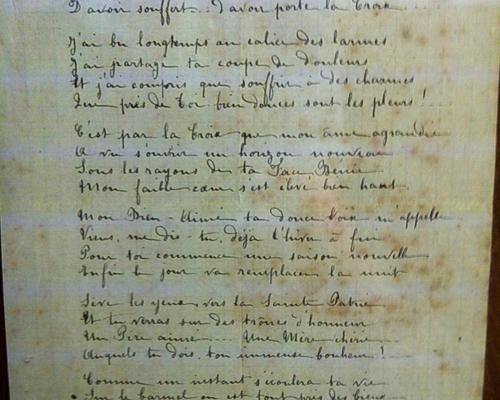 D'avoir souffert... d'avoir porté la Croix
J'ai bu longtemps au calice des larmes
J'ai partagé ta coupe de douleurs
Et j'ai compris que souffrir a des charmes
Que près de toi bien douces sont les pleurs !
C'est par la Croix que mon âme agrandie
A vu s'ouvrir un horizon nouveau
Sous les rayons de ta Face Bénie
Mon faible cœur s'est élevé bien haut.
Mon Bien-Aimé ta douce Voix m'appelle
Viens, me dis-tu, déjà l'hiver a fui
Pour toi commence une saison nouvelle
Enfin le jour va remplacer la nuit
Lève les yeux vers la Sainte Patrie
Et tu verras sur des trônes d'honneur
Un Père aimé.... Une Mère chérie....
Auxquels tu dois ton immense bonheur !...
Comme un instant s'écoulera ta vie
Sur le Carmel on est tout près des Cieux